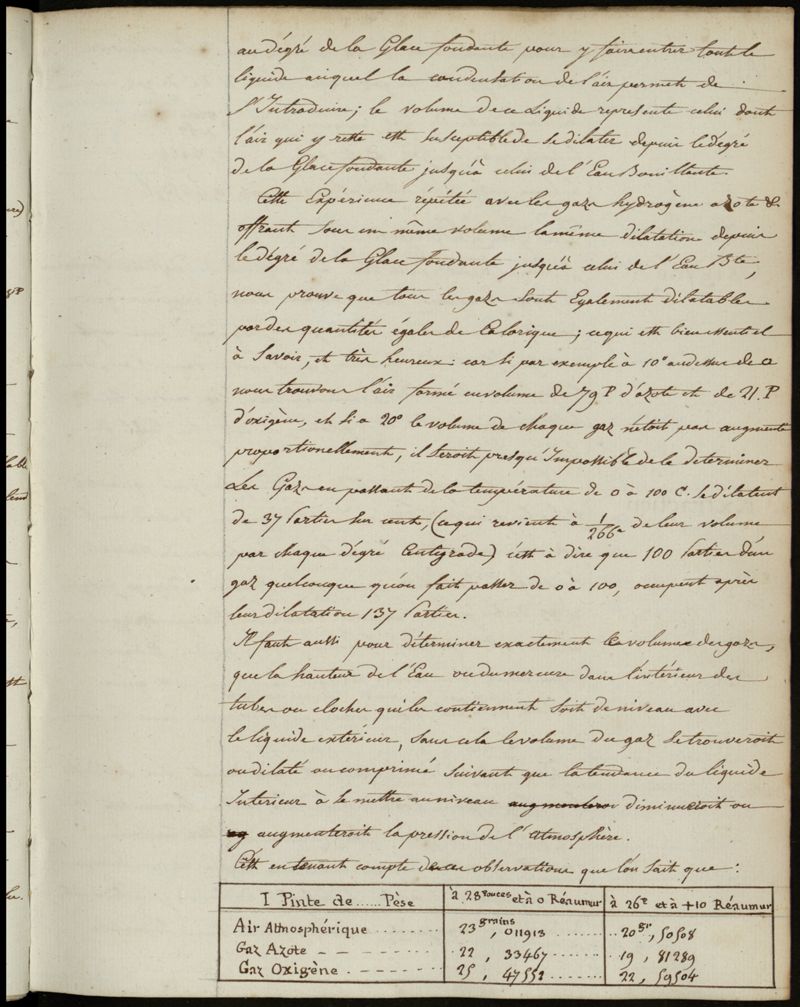 au dégré de la Glace fondante pour y faire entrer toute le
liquide auquel la condensation de l'air permet de
s'Introduire; le volume de ce Liquide represente celui dont
l'air qui y reste est susceptible de se dilater depuis le dégré
de la Glace fondante jusqu'à celui de l'Eau Bouillante.
Cette Expérience répétée avec les gazs hydrogène azote &
offrant sous un même volume la même dilatation depuis
le dégré de la Glace fondante jusqu'à celui de l'Eau Bte,
nous prouve que tous les gazs sont Egalement dilatables
par des quantités égales de Calorique; ce qui est bien essentiel
à savoir, et très heureux: car si par exemple à 10° au dessus de 0
nous trouvons l'air formé en volume de 79 P d'azote et de 21. P
d'oxigène, et si a 20° le volume de chaque gaz n'étoit pas augmenté
proportionellement, il seroit presqu'Impossible de la determiner
Les Gazs en passant de la température de 0 à 100 C. se dilatent
de 37 Parties sur cent, (ce qui revient à 1/266e de leur volume
par chaque dégré Centigrade) c'est à dire que 100 Parties d'un
gaz quelconque qu'on fait passer de 0 à 100, occupent après
leur dilatation 137 Parties.
Il faut aussi pour déterminer exactement le volume des gazs,
que la hauteur de l'Eau ou du mercure dans l'intérieur des
tubes ou cloches qui les contiennent soit de niveau avec
le liquide extérieur, sans cela le volume du gaz se trouveroit
ou dilaté ou comprimé suivant que la tendance du liquide
Interieur à se mettre au niveau augmenteroi diminueroit ou
ag augmenteroit la pression de l'atmosphère.
C'est en tenant compte de ces observations que l'on sait que:
I Pinte de ...... Pèse à 28 Pouces et à 0 Réaumur à 26e et à +10 Réaumur
Air Atmosphérique ........ 23 grains, 011913 ...... 20 gr, 50508
Gaz Azote - - - - - - 22, 33467 ...... 19, 81289
Gaz Oxigène - - - - - - 25, 47552 ...... 22, 59504